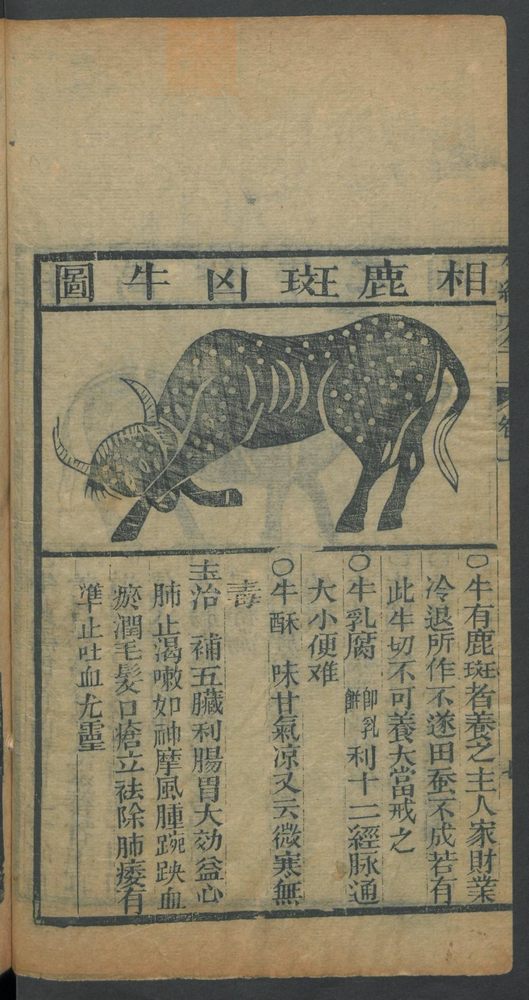 相鹿斑凶牛圖
〇牛有鹿斑者養之主人家財業
冷退所作不遂田蚕不成若有
此牛切不可養大當戒之
〇牛乳腐 卽乳餅 利十二經脉通
大小便难
〇牛酥 味甘氣凉又云微寒無
毒
主治 補五臓利腸胃大効益心
肺止渴嗽如神摩風腫踠跌血
瘀潤毛髪口瘡立祛除肺痿有
準止吐血尤靈